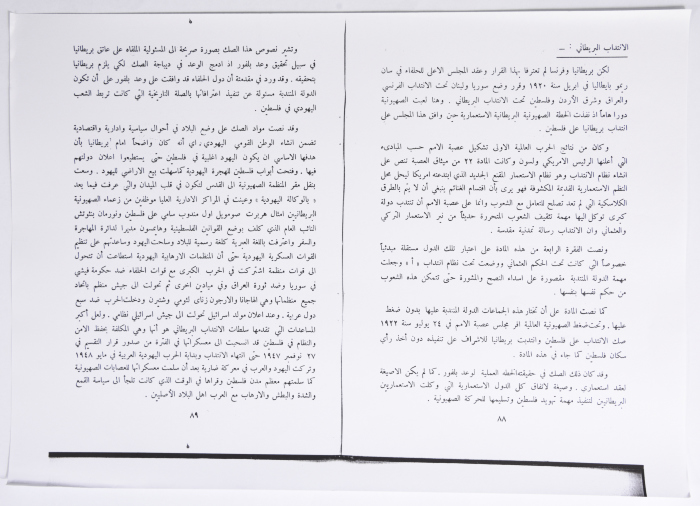 الانتداب البريطاني : —
لكن بريطانيا وفرنسا لم تعترفا بهذا القرار وعقد المجلس الاعلى للحلفاء في سان
ريمو بايطاليا في ابريل سنة ١٩٢٠ وقرر وضع سوريا ولبنان تحت الانتداب الفرنسي
والعراق وشرق الأردن وفلسطين تحت الانتداب البريطاني . وهنا لعبت الصهيونية
دوراً هاماً اذ نفذت الخطة الصهيونية البريطانية الاستعمارية حين وافق هذا المجلس على
انتداب بريطانيا على فلسطين .
وكان من نتائج الحرب العالمية الاولى تشكيل عصبة الامم حسب المبادىء
التي أعلنها الرئيس الامريكي ولسون وكانت المادة ٢٢ من ميثاق العصبة تنص على
انشاء نظام الانتداب وهو نظام الاستعمار المقنع الجديد الذي ابتدعته امريكا ليحل محل
النظم الاستعمارية القديمة المكشوفة فهو يرى بأن اقتسام الغنائم ينبغي أن لا يتم بالطرق
الكلاسكية التي لم تعد تصلح للتعامل مع الشعوب وانما على عصبة الامم أن تنتدب دولة
كبرى توكل اليها مهمة تثقيف الشعوب المتحررة حديثاً من نير الاستعمار التركي
والعثماني وان الانتداب رسالة تمدنية مقدسة .
ونصت الفقرة الرابعة من هذه المادة على اعتبار تلك الدول مستقلة مبدئياً
خصوصاً التي كانت تحت الحكم العثماني ووضعت تحت نظام انتداب « أ » وجعلت
مهمة الدولة المنتدبة مقصورة على اسداء النصح والمشورة حتى تتمكن هذه الشعوب
من حكم نفسها بنفسها .
كما نصت المادة على أن تختار هذه الجماعات الدولة المنتدبة عليها بدون ضغط
عليها . وتحت ضغط الصهيونية العالمية اقر مجلس عصبة الامم في ٢٤ يوليو سنة ١٩٢٢
صك الانتداب على فلسطين وانتدبت بريطانيا للاشراف على تنفيذه دون أخذ رأي
سكان فلسطين كما جاء في هذه المادة .
وقد كان ذلك الصك في حقيقته الخطة العملية لوعد بلفور . كما لم يكن الاصيغة
لعقد استعماري . وصيغة لاتفاق كل الدول الاستعمارية التي وكلت الاستعماريين
البريطانيين لتنفيذ مهمة تهويد فلسطين وتسليمها للحركة الصهيونية .
٨٨
وتشير نصوص هذا الصك بصورة صريحة الى المسئولية الملقاه على عاتق بريطانيا
في سبيل تحقيق وعد بلفور اذ ادمج الوعد في ديباجة الصك لكي يلزم بريطانيا
بتحقيقه . وقد ورد في مقدمته أن دول الحلفاء قد وافقت على وعد بلفور على أن تكون
الدولة المنتدبة مسئولة عن تنفيذ اعترافاً بالصلة التاريخية التي كانت تربط الشعب
اليهودي في فلسطين .
وقد نصت مواد الصك على وضع البلاد في أحوال سياسية وادارية واقتصادية
تضمن انشاء الوطن القومي اليهودي . اي أنه كان واضحاً امام بريطانيا بأن
هدفها الاساسي ان يكون اليهود اغلبية في فلسطين حتى يستطيعوا اعلان دولتهم
فيها . وفتحت أبواب فلسطين للهجرة اليهودية كما سهلت بيع الاراضي لليهود . وسعت
بنقل مقر المنظمة الصهيونية الى القدس لتكون في قلب الميدان والتي عرفت فيما بعد
« بالوكالة اليهودية » وعينت في المراكز الادارية العليا موظفين من زعماء الصهيونية
البريطانيين امثال هربرت صموئيل اول مندوب سامي على فلسطين ونورمان بنتوتش
النائب العام الذي كلف بوضع القوانين الفلسطينية وهايمسون مديرا لدائرة المهاجرة
والسفر واعترفت باللغة العبرية كلغة رسمية للبلاد وساحت ليهود وساعدتهم على تنظيم
القوات العسكرية اليهودية حتى أن المنظمات الارهابية اليهودية استطاعت أن تتحول
الى قوات منظمة اشتركت في الحرب الكبرى مع قوات الحلفاء ضد حكومة فيشي
في سوريا وضد ثورة العراق وفي ميادين اخرى ثم تحولت الى جيش منظم باتحاد
جميع منظماتها وهي الهاجاناة والارجون زناي لئومي وشتيرن ودخلت الحرب ضد سبع
دول عربية . وعند اعلان مولد اسرائيل تحولت الى جيش اسرائيلي نظامي . ولعل أكبر
المساعدات التي تقدمها سلطات الانتداب البريطاني هو أنها وهي المكلفة بحفظ الامن
والنظام في فلسطين قد انسحبت الى معسكراتها في الفترة من صدور قرار التقسيم في
٢٧ نوفمبر ١٩٤٧ حتى انتهاء الانتداب وبداية الحرب اليهودية العربية في مايو ١٩٤٨
وتركت اليهود والعرب في معركة ضارية بعد أن سلمت معسكراتها للعصابات الصهيونية
كما سلمتهم معظم مدن فلسطين وقراها في الوقت الذي كانت تلجأ الى سياسة القمع
والشدة والبطش والارهاب مع العرب اهل البلاد الأصليين .
٨٩